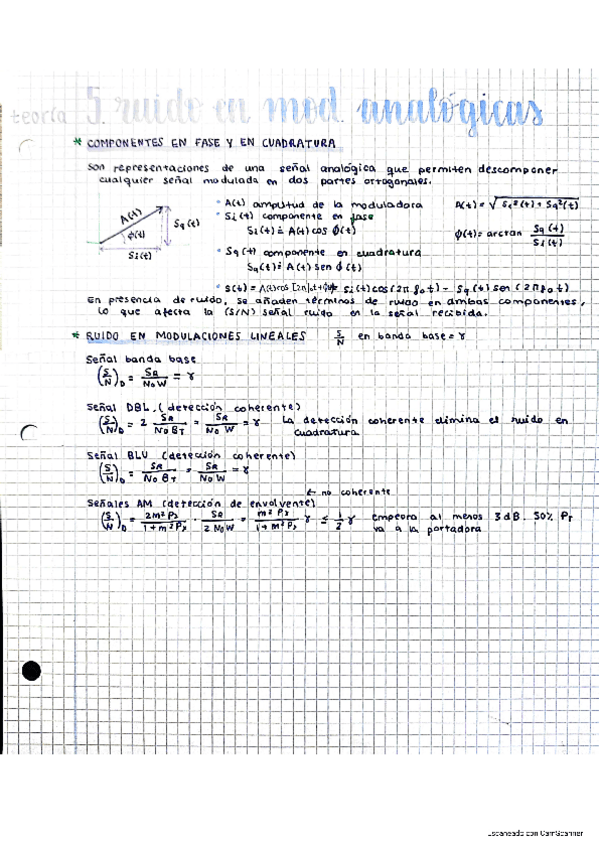 teoría 5. ruido en mod. analógicas
* COMPONENTES EN FASE Y EN CUADRATURA
Son representaciones de una señal analógica que permiten descomponer
cualquier señal modulada en dos partes ortogonales.
A(t)
ϕ(t)
Sq(t)
Si(t)
• A(t) amplitud de la moduladora
• Si(t) componente en fase
Si(t) = A(t) cos ϕ(t)
• Sq(t) componente en cuadratura
Sq(t) = A(t) sen ϕ(t)
A(t) = √Si²(t) + Sq²(t)
ϕ(t) = arctan Sq(t) / Si(t)
• S(t) = A(t) cos [2πf₀t + ϕ(t)] = Si(t) cos(2πf₀t) - Sq(t) sen(2πf₀t)
En presencia de ruido, se añaden términos de ruido en ambas componentes,
lo que afecta la (S/N) señal ruido en la señal recibida.
* RUIDO EN MODULACIONES LINEALES S/N en banda base = γ
Señal banda base
(S/N)D = SR / N₀W = γ
Señal DBL (detección coherente)
(S/N)D = 2 SR / N₀BT = SR / N₀W = γ La detección coherente elimina el ruido en
cuadratura
Señal BLU (detección coherente)
(S/N)D = SR / N₀BT = SR / N₀W = γ
← no coherente
Señales AM (detección de envolvente)
(S/N)D = 2m²Px / 1+m²Px · SR / 2N₀W = m²Px / 1+m²Px γ ≤ 1/2 γ empeora al menos 3dB. 50% PT
va a la portadora
Escaneado con CamScanner